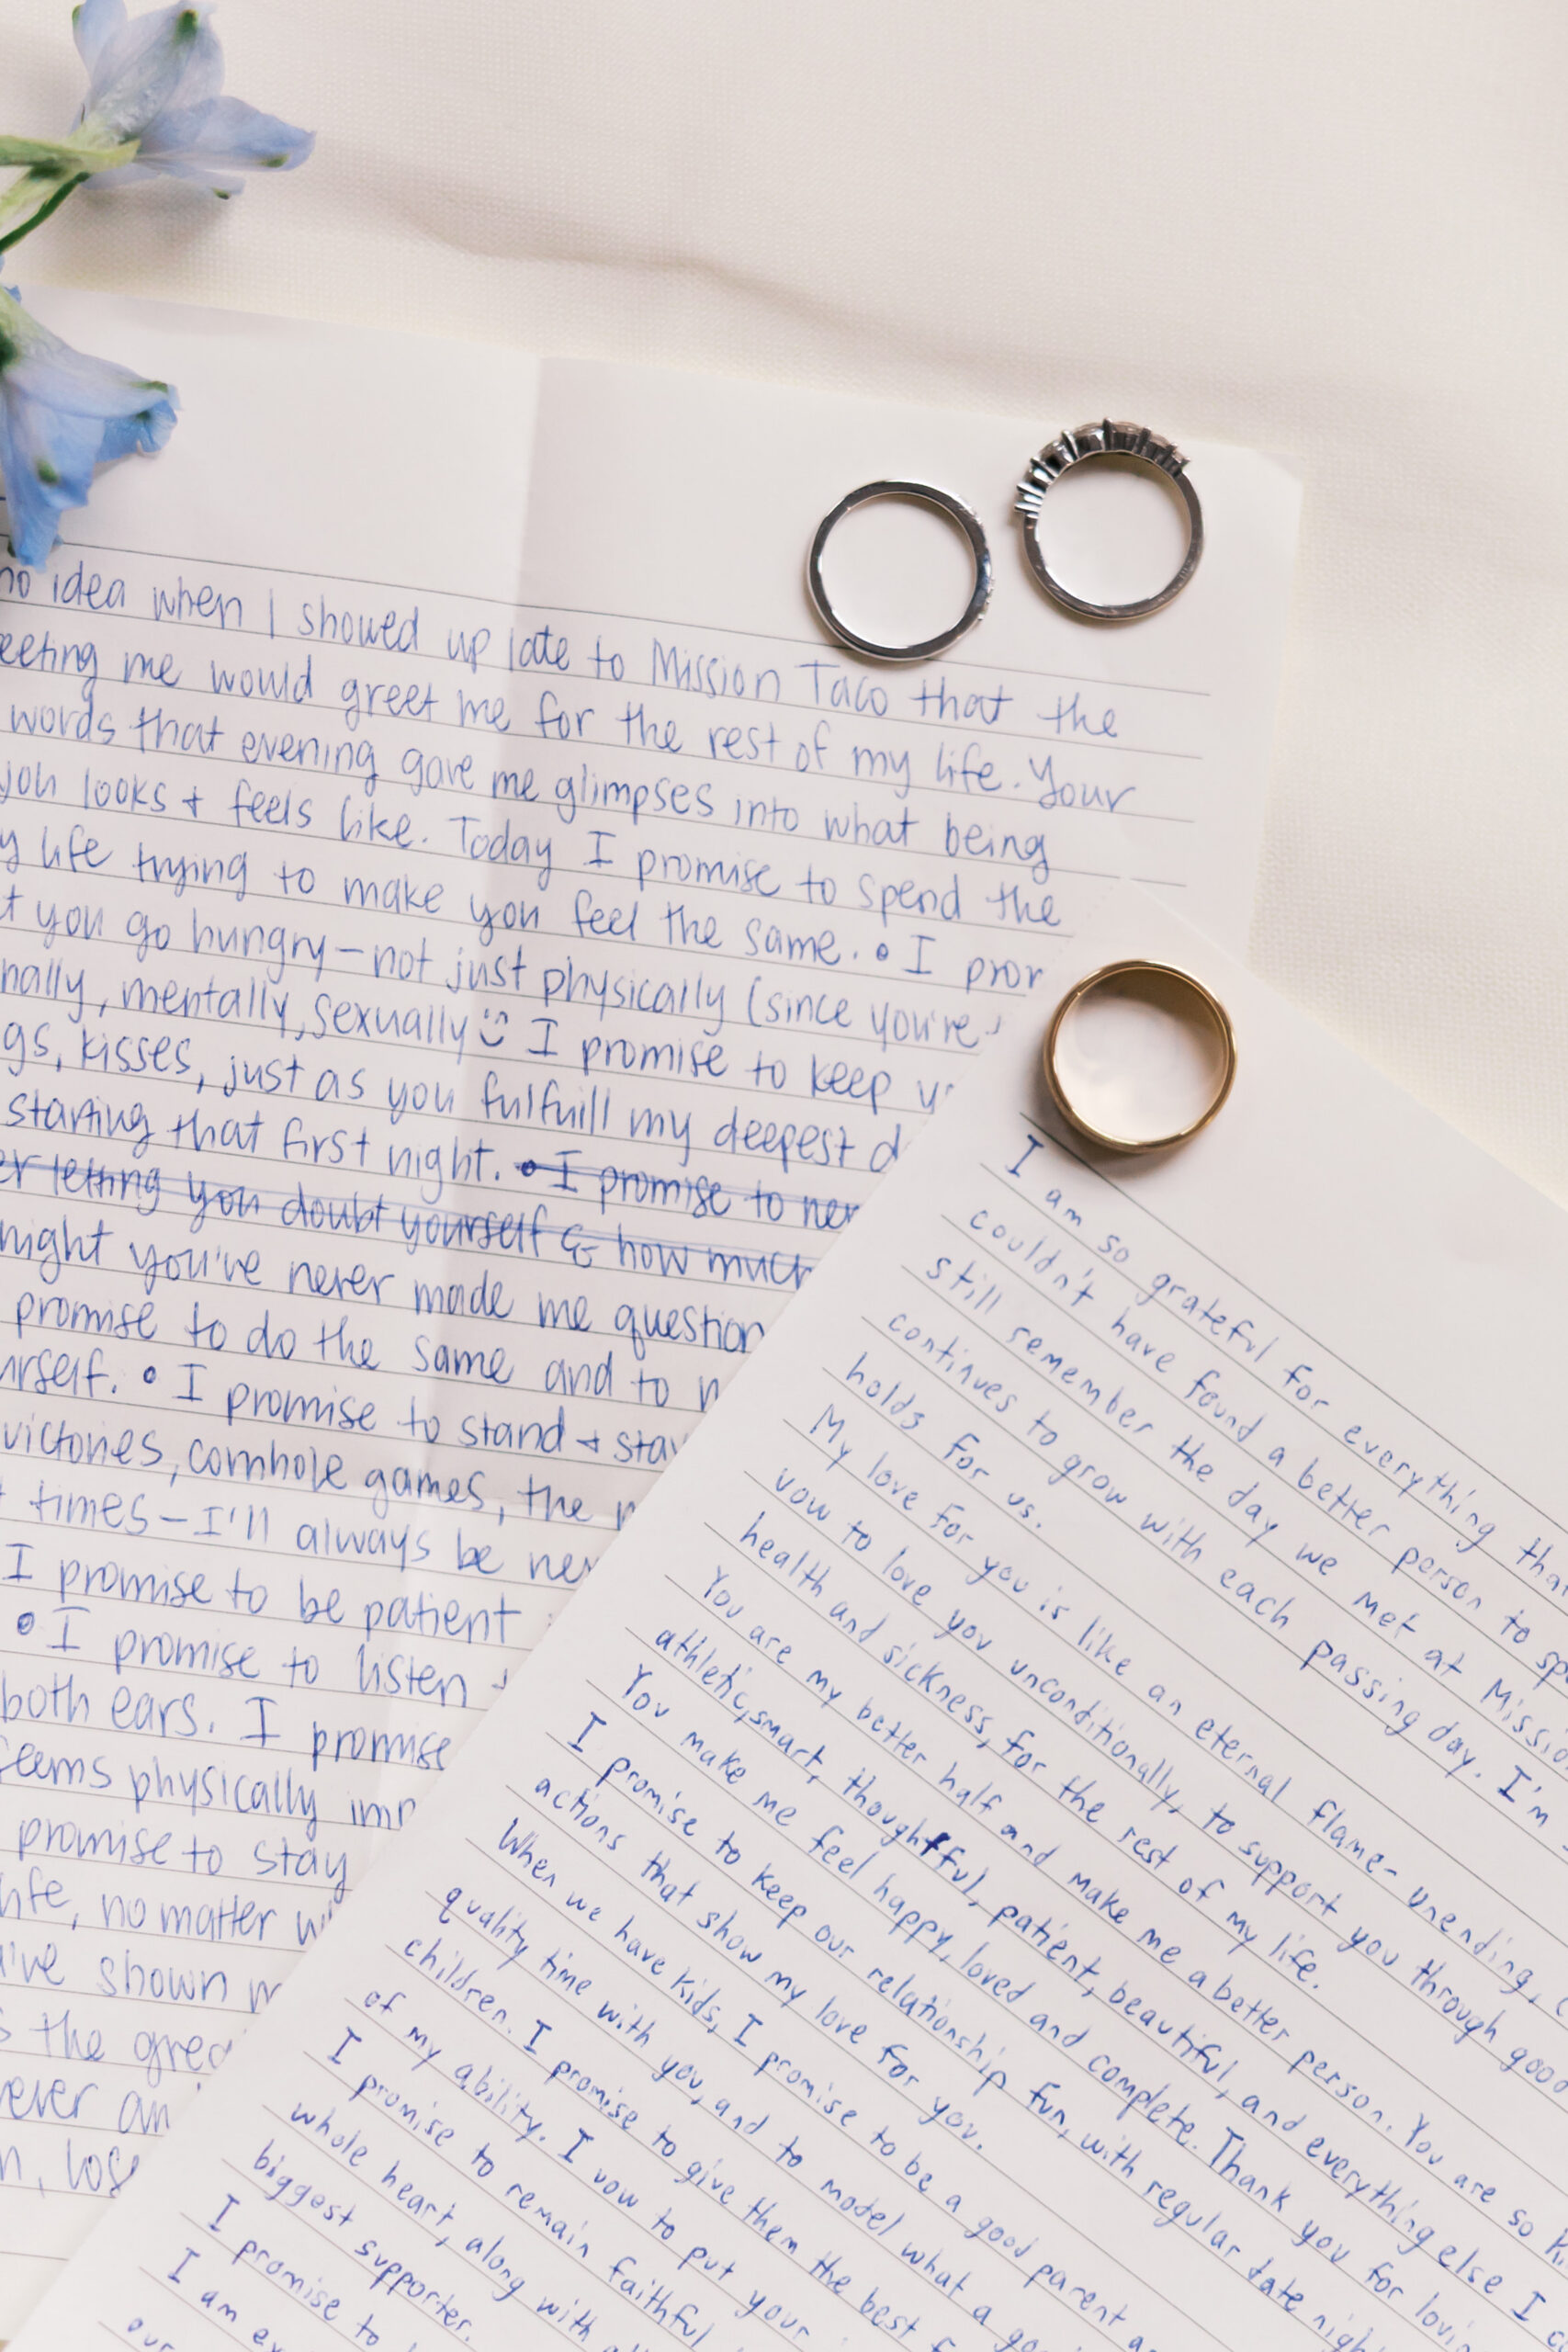 no idea when I showed up late to Mission Taco that the
me would greet me for the rest of my life. Your
words that evening gave me glimpses into what being
looks + feels like. Today I promise to spend the
life trying to make you feel the same. • I
you go hungry - not just physically (since you're
mentally, sexually I promise to keep
kisses, just as you fulfuill my deepest
starting that first night. • I promise to
letting you doubt yourself & how much
you've never made me question
promise to do the same and to
• I promise to stand +
victories, cornhole games, the
times - I'll always be
I promise to be patient
• I promise to listen
both ears. I promise
physically
promise to stay
no matter
shown
the
I am so grateful for everything that
couldn't have found a better person to
still remember the day we met at
continues to grow with each passing day. I'm
holds for us.
My love for you is like an eternal flame - unending,
vow to love you unconditionally, to support you through good
health and sickness, for the rest of my life.
You are my better half and make me a better person. You are so
athletic, smart, thoughtful, patient, beautiful, and everything else I
You make me feel happy, loved and complete. Thank you for
I promise to keep our relationship fun, with regular date
actions that show my love for you.
When we have kids, I promise to be a good parent
quality time with you, and to model what a
children. I promise to give them the best
of my ability. I vow to put your
I promise to remain faithful
whole heart, along with
biggest supporter.
I promise to
I am
our